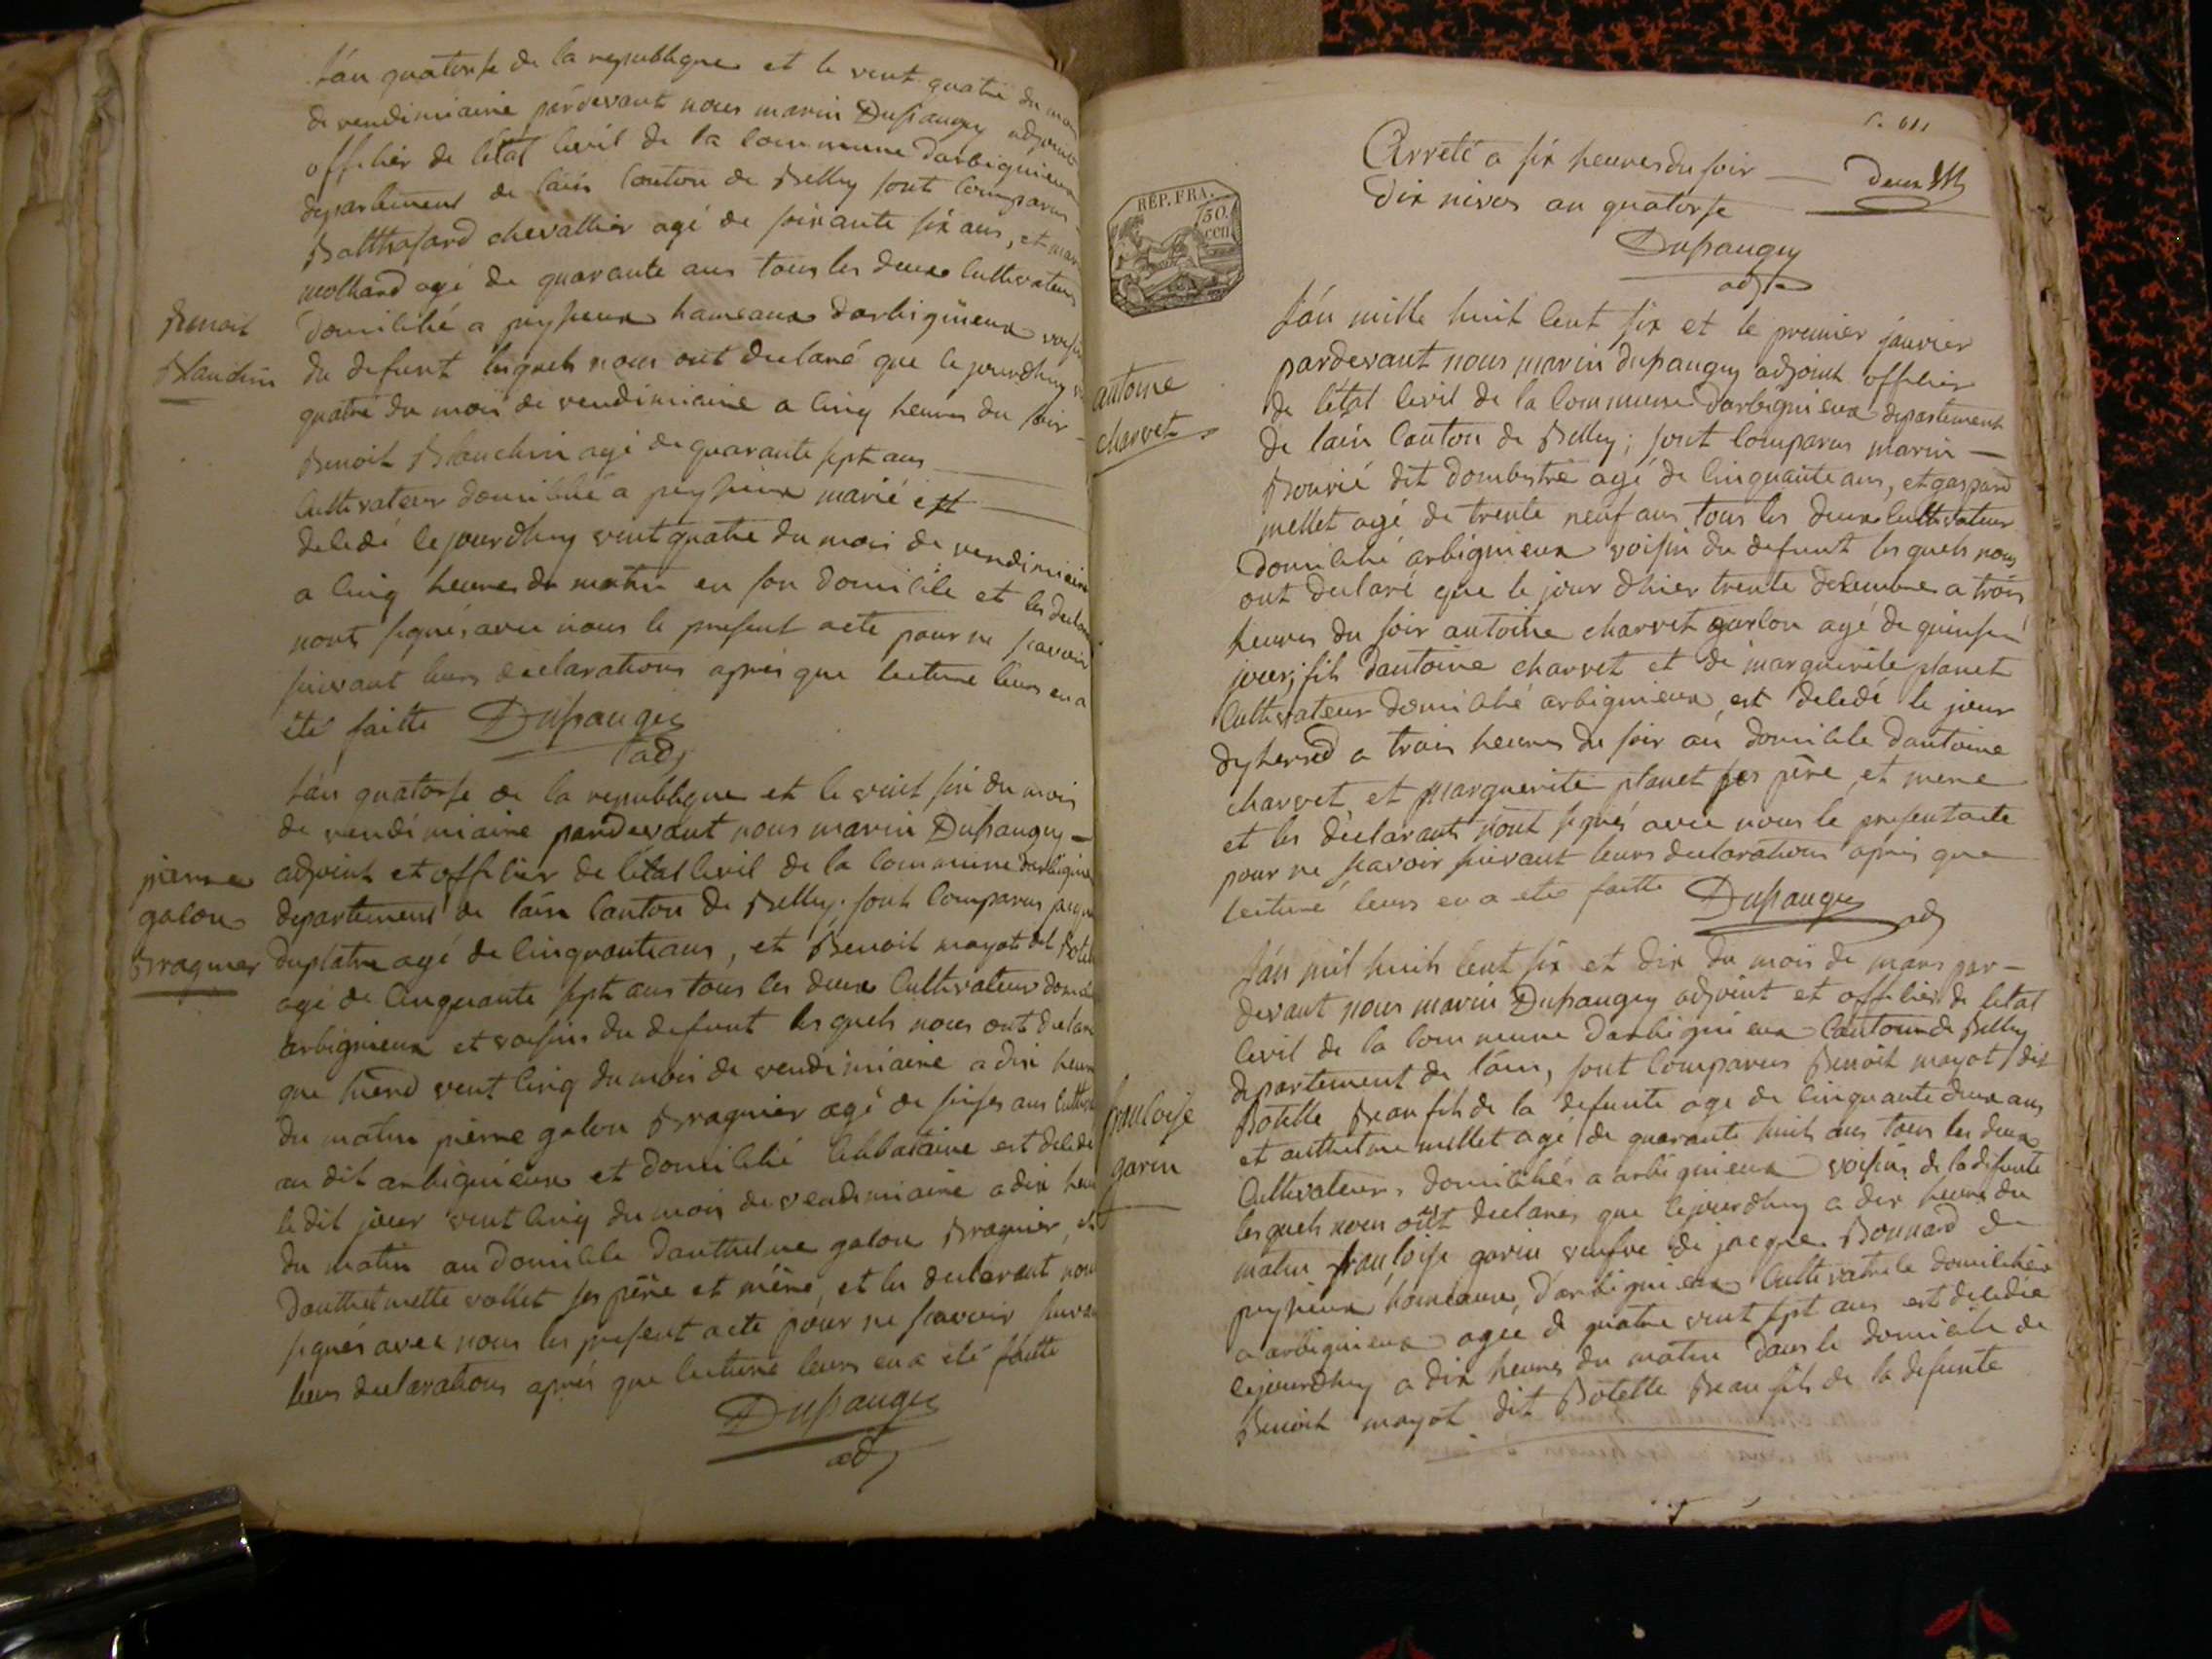 l'an quatorse de la republique et le vent quatre du mois
de vendimiaire pardevant nous marin Dupauguy adjoint
officier de l'état civil de la commune darbignieux
departement de l'ain canton de Belley sont comparus
Balthasard chevallier agé de soixante six ans, et
molhard agé de quarante ans tous les deux cultivateurs
domicilié a peysieux hameaux darbignieux voisin
du defunt lesquels nous ont declaré que cejourdhuy
quatre du mois de vendimiaire a cinq heures du soir
Benoit
Blanchin
Benoit Blanchin agé de quarante sept ans
cultivateur domicilié a peysieux marié est
decedé cejourdhuy vent quatre du mois de vendimiaire
a cinq heures du matin en son domicile et les
nont signés avec nous le present acte pour ne scavoir
suivant leurs declarations après que lecture leurs en a
été faitte Dupauguy
adj
l'an quatorse de la republique et le vint six du mois
de vendimiaire pardevant nous marin Dupauguy
adjoint et officier de l'état civil de la commune darbignieu
pierre
galon
Bragnier
departement de l'ain canton de Belley. sont comparus
duplatre agé de cinquante ans, et Benoit mayot dit
agé de cinquante sept ans tous les deux cultivateur
arbignieux et voisins du defunt lesquels nous ont declaré
que hierd vent cinq du mois de vendimiaire a dix heures
du matin pierre galon Bragnier agé de seises ans
au dit arbignieux et domicilié est decedé
ledit jour vent cinq du mois de vendimiaire a dix
du matin au domicile danthelme galon Bragnier, et
danthelmette vollet ses père et mère, et les declarant
signés avec nous les present acte pour ne scavoir
leurs declarations après que lecture leurs en a été faitte
Dupauguy
adj
Arreté a six heures du soir
dix nivos an quatorse
Dupauguy
adj
deux
REP. FRA.
50.
cen
antoine
charvet
l'an mille huit cent six et le premier janvier
pardevant nous marin dupauguy adjoint officier
de l'état civil de la commune darbignieux departement
de l'ain canton de Belley; sont comparus marin
Bourié dit dombistre agé de cinquante ans, et gaspard
mellet agé de trente neuf ans tous les deux cultivateur
domicilié arbignieux voisin du defunt lesquels nous
ont declaré que le jour dhier trente decembre a trois
heures du soir antoine charvet garson agé de quinse
jour, fils dantoine charvet et de marguerite planet
cultivateur domicilié arbignieux, est decedé le jour
dyherd a trois heures du soir au domicile dantoine
charvet et marguerite planet ses père et mere
et les declarants nont signés avec nous le present acte
pour ne scavoir suivant leurs declarations après que
lecture leurs en a ete faitte Dupauguy
adj
l'an mil huit cent six et dix du mois de mars par-
devant nous marin Dupauguy adjoint et officier de létat
civil de la commune darbignieux canton de Belley
departement de l'ain, sont comparus Benoit mayot dit
francoise
garin
Botelle Beau fils de la defunte age de cinquante deux ans
et anthelme mellet agé de quarante huit ans tous les deux
cultivateurs domiciliés a arbignieux voisins de la defunte
lesquels nous ont declarés que cejourdhuy a dix heures du
matin françoise garin veufve de jacque Bonnard de
peysieux hameaux, darbignieux cultivatrice domiciliée
a arbignieux agee de quatre vent sept ans est decedée
cejourdhuy a dix heures du matin dans le domicile de
Benoit mayot dit Botelle Beau fils de la defunte